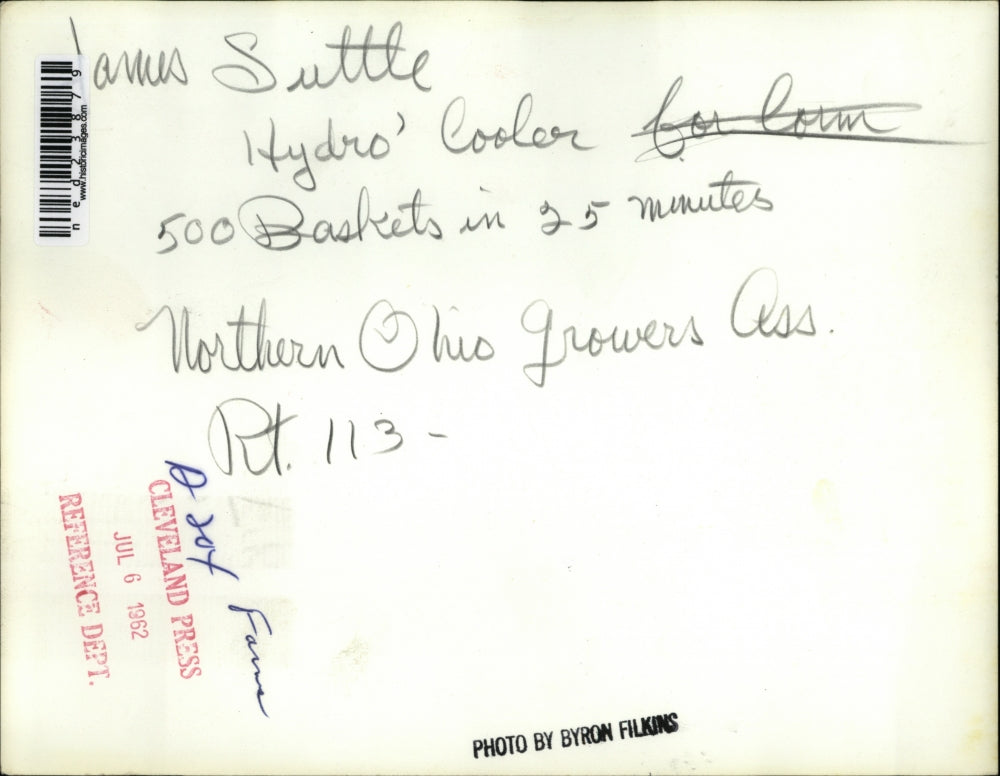 James Suttle
Hydro' Cooler for Corn
500 Baskets in 25 minutes
Northern Ohio Growers Ass.
Rt. 113 -
ned23879
www.historicimages.com
CLEVELAND PRESS
JUL 6 1962
REFERENCE DEPT.
PHOTO BY BYRON FILKINS